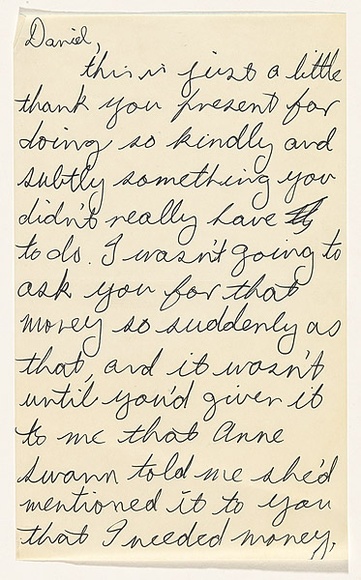 Daniel,
this is just a little
thank you present for
doing so kindly and
subtly something you
didn't really have
to do. I wasn't going to
ask you for that
money so suddenly as
that, and it wasn't
until you'd given it
to me that Anne
Swann told me she'd
mentioned it to you
that I needed money,